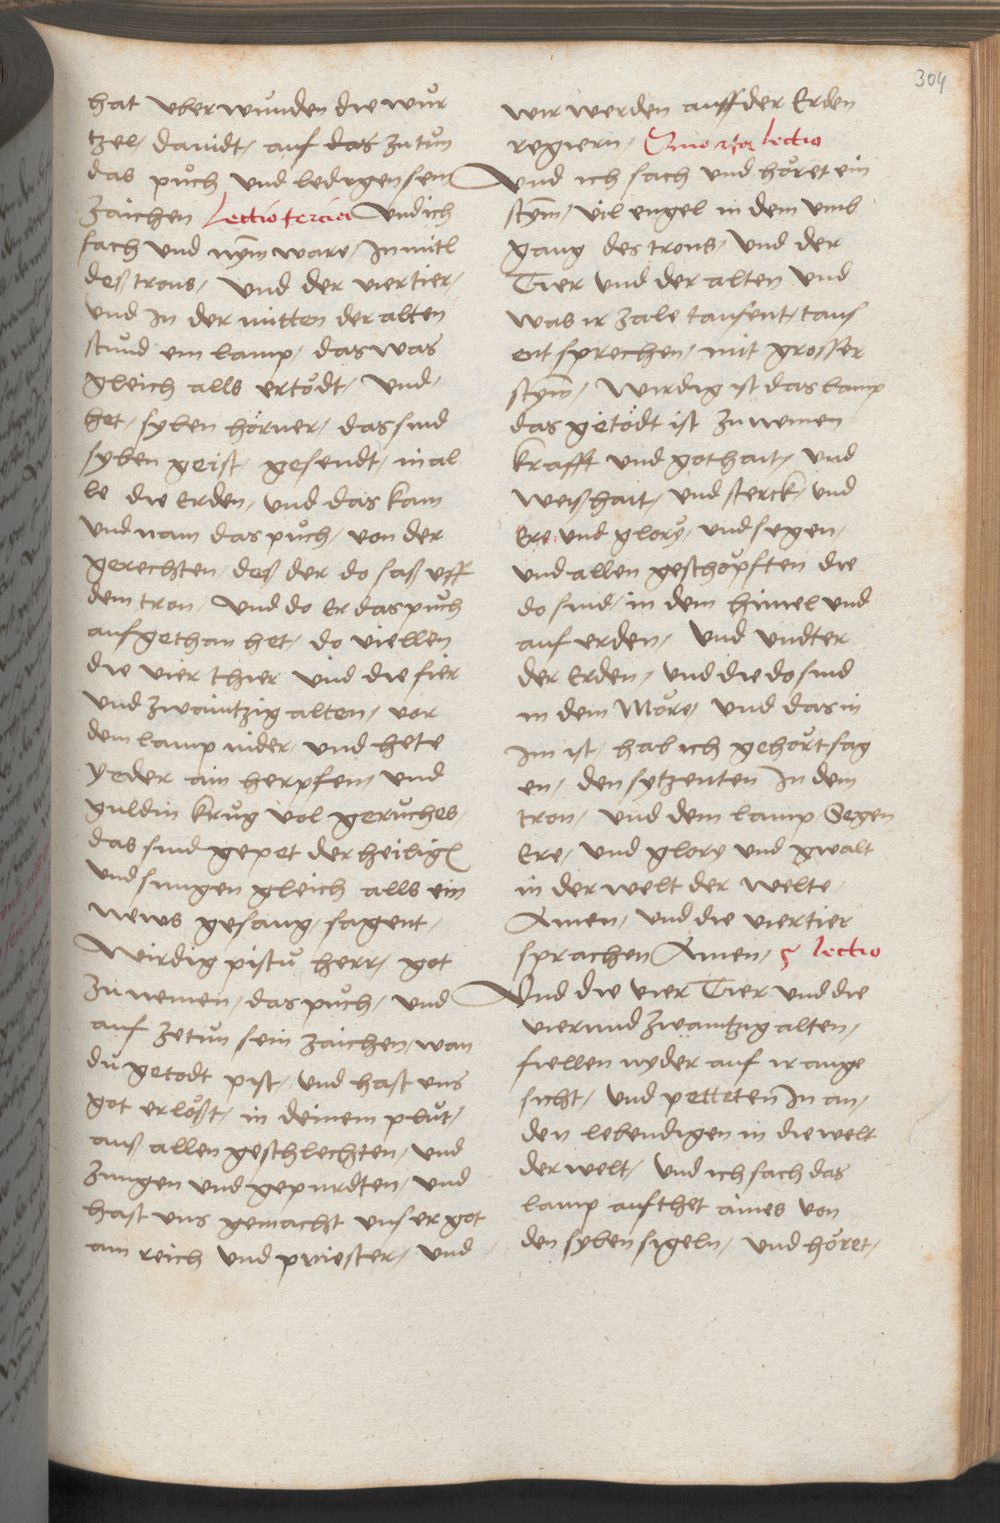 304
hat uberwunden die wur
tzel, dauidt, auf das zu tun
das puͦch und ledigen sein
zaichen Lectio tercia Und ich
sach und nym ware, In mitl
deß trons, Und der vier tier,
und In der mitten der alten
stuͦnd ein lamp, das was
gleich alls ertödt, Und,
het, syben hörner, das sind
syben geist, gesendt, in al
le die Erden, und das kam
und nam das puͦch, von der
gerechten, deß der do saß uff
dem tron, Und do Er das puͦch
aufgethan het, do viellen
die vier thier und die fier
und zwaintzig alten, vor
dem lamp nider, und hete
yeder ain herpfein und
guldin kruͦg vol geruches,
das sind gepet der heilign
und sungen gleich alls ein
news gesang, sagent,
Wirdig pistu herr, got
zu nemen, das puͦch, und
auf zetuͦn sein zaichen, wan
du getodt pist, und hast uns
got erlößt, in deinem pluͦt,
auß allen geschlechten, und
zungen und gepurdten, und
hast uns gemacht unser got
ain reich und priester, und
wir werden auff der Erden
regiern, Quarta lectio
Und ich sach und höret ein
stym, vil engel in dem umb
gang des trons, Und der
Tier und der alten Und
was ir zale tausent, taus
ent sprechen, mit grosser
stym, Wirdig ist das lamp
das getödt ist zu nemen
krafft und gothait, und
weißhait, und sterck, und
Ere und glory, und segen,
und allen geschöpften die
do sind, in dem himel und
auf erden, Und undter
der Erden, und die do sind
in dem Möre, Und das in
im ist, hab ich gehört sag
en, den sytzenten In dem
tron, und dem lamp Segen
Ere, und glory und gwalt
in der welt der welte,
Amen, und die vier tier
sprachen Amen, 5 lectio
Und die vier Tier und die
vierund zwaintzig alten,
fiellen nyder auf ir ange
sicht, und petteten In an,
den lebendigen in die welt
der welt, Und ich sach das
lamp auf thet aines von
den syben sigeln, und höret,